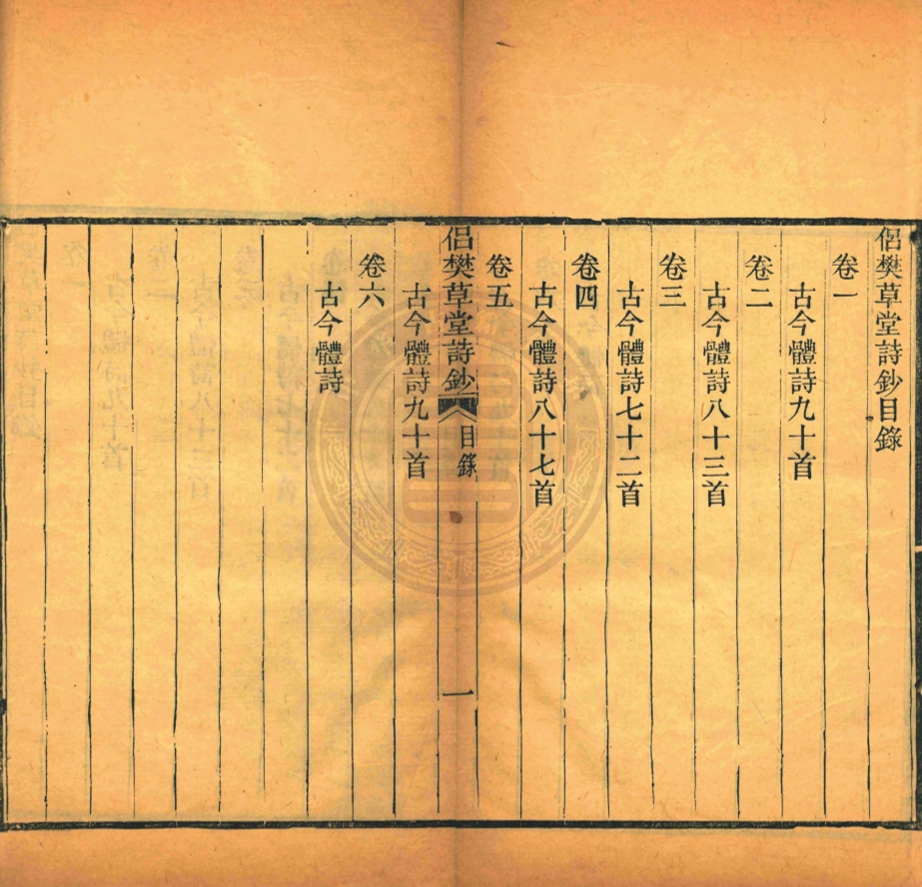 侣樊草堂詩鈔目錄
卷一
古今體詩九十首
卷二
古今體詩八十三首
卷三
古今體詩七十二首
卷四
古今體詩八十七首
卷五
侣樊草堂詩鈔 目錄 一
古今體詩九十首
卷六
古今體詩